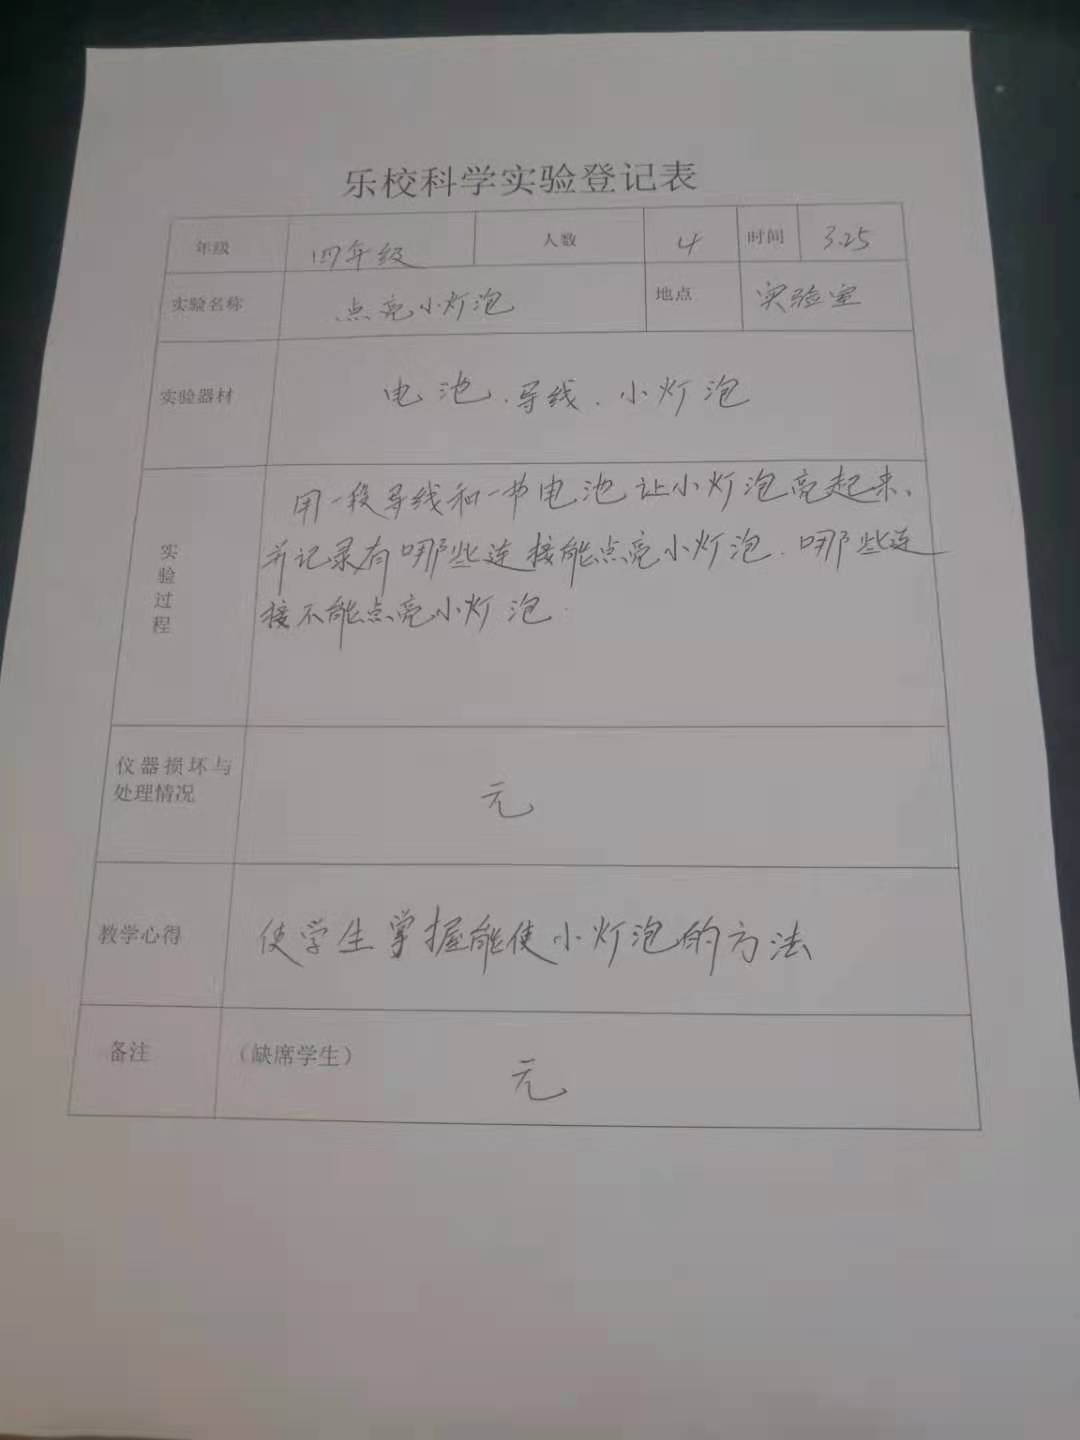 乐校科学实验登记表
年级 四年级 人数 4 时间 3.25
实验名称 点亮小灯泡 地点 实验室
实验器材 电池、导线、小灯泡
实验过程
用一段导线和一节电池让小灯泡亮起来、
并记录有哪些连接能点亮小灯泡、哪些连
接不能点亮小灯泡.
仪器损坏与
处理情况
无
教学心得 使学生掌握能使小灯泡的方法
备注 （缺席学生）
无